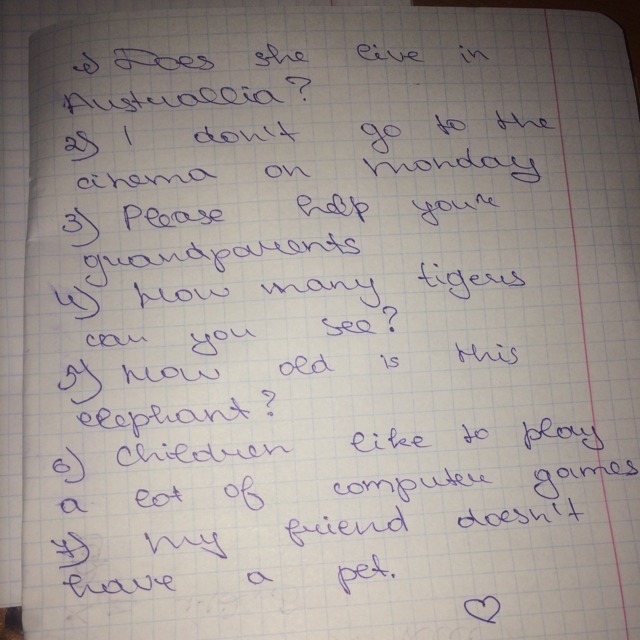 1) Does she live in
Australlia?
2) I don't go to the
cinema on monday
3) Please help you're
grandparents
4) How many tigers
can you see?
5) How old is this
elephant?
6) Children like to play
a lot of computer games
7) My friend doesn't
have a pet.